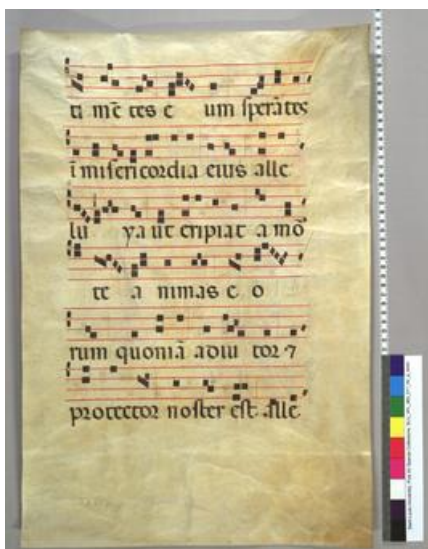 ti mē tes e um sperātes
ī misericordia eius alle
lu ya ut eripiat a mō
te a nimas e o
rum quoniā adiu tor ⁊
protector noster est alle